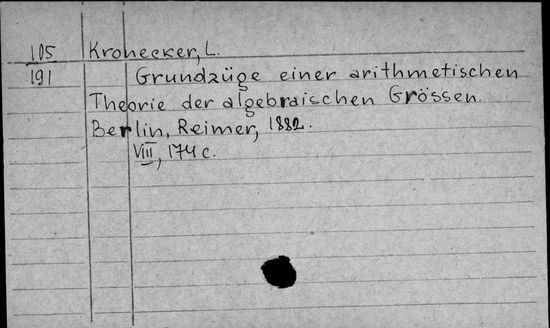 105
191
Kronecker, L.
Grundzüge einer arithmetischen
Theorie der algebraischen Grössen.
Berlin, Reimer, 1882.
VIII, 174 c.